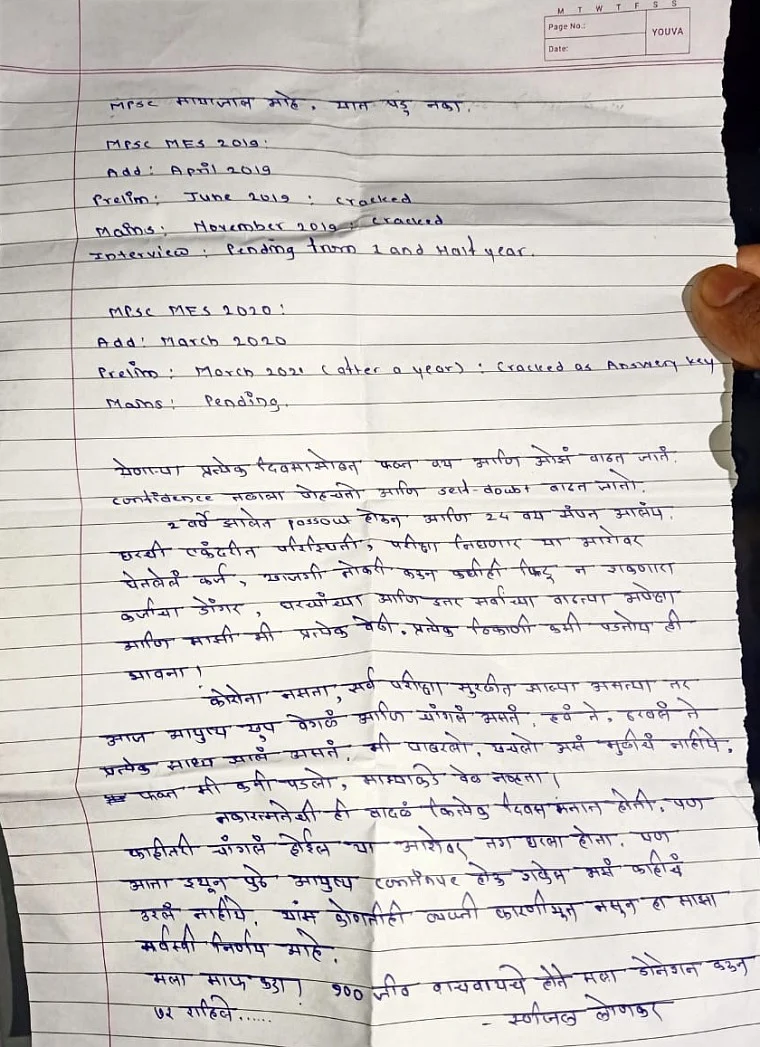 M T W T F S S
Page No.:
Date:
YOUVA
MPSC मायाजाल आहे. यात पडु नका.
MPSC MES 2019:
Add: April 2019
Prelim: June 2019 : cracked
Mains: November 2019 : cracked
Interview : Pending from 1 and Half year.
MPSC MES 2020:
Add: March 2020
Prelim: March 2021 (after a year) : Cracked as Answery key
Mains: Pending.
येणाऱ्या प्रत्येक दिवसासोबत फक्त वय आणि ओझं वाढत जातं.
confidence तळाला पोहचतो आणि self-doubt वाढत जातो.
2 वर्षे झालेत passout होऊन आणि 24 वय संपत आलंय.
घरची एकंदरीत परिस्थिती, परीक्षा निघणार या आशेवर
घेतलेलं कर्ज, खाजगी नोकरी करून कधीही फिटु न शकणारा
कर्जाचा डोंगर, घरच्यांच्या आणि इतर सर्वांच्या वाढत्या अपेक्षा
आणि माझी मी प्रत्येक वेळी. प्रत्येक ठिकाणी कमी पडतोय ही
भावना!
कोरोना नसता, सर्व परीक्षा सुरळीत झाल्या असत्या तर
आज आयुष्य खुप वेगळं आणि चांगलं असतं. हवं ते, ठरवलं ते
प्रत्येक साध्य झालं असतं. मी घाबरलो, खचलो असं मुळीचं नाहीये.
फक्त मी कमी पडलो, माझ्याकडे वेळ नव्हता!
नकारात्मतेची ही वादळं कित्येक दिवस मनात होती. पण
काहीतरी चांगलं होईल या आशेवर तग धरला होता. पण
आता इथून पुढे आयुष्य continue होऊ शकेल असं काहीचं
उरलं नाहीये. यांस कोणतीही व्यक्ती कारणीभूत नसून हा माझा
सर्वस्वी निर्णय आहे.
मला माफ करा! १०० जीव वाचवायचे होते मला डोनेशन करून
७२ राहिले......
- स्वप्निल लोणकर